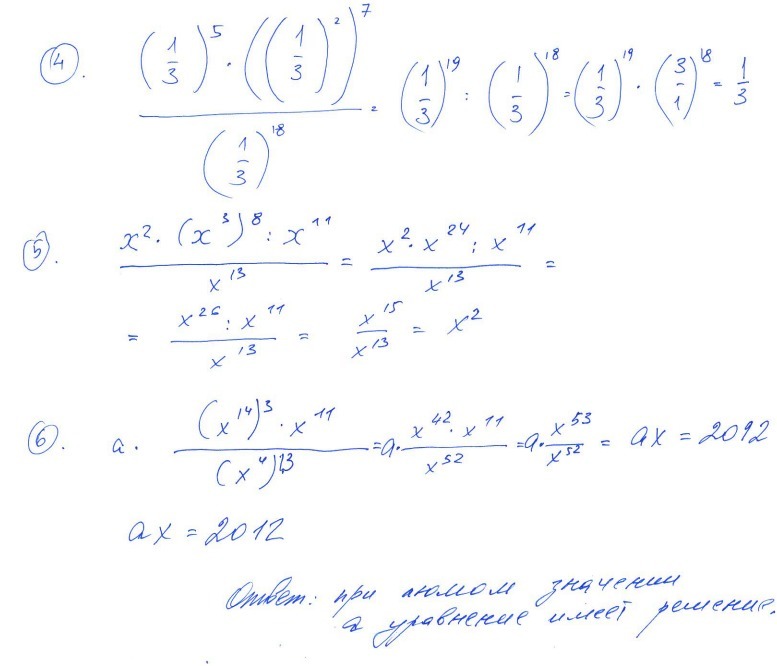 4. ((1/3)^5 · ((1/3)^2)^7) / (1/3)^18 = (1/3)^19 : (1/3)^18 = (1/3)^19 · (3/1)^18 = 1/3
5. (x^2 · (x^3)^8 : x^11) / x^13 = (x^2 · x^24 : x^11) / x^13 =
= (x^26 : x^11) / x^13 = x^15 / x^13 = x^2
6. a · ((x^14)^3 · x^11) / (x^4)^13 = a · (x^42 · x^11) / x^52 = a · x^53 / x^52 = ax = 2012
ax = 2012
Ответ: при любом значении
a уравнение имеет решение.